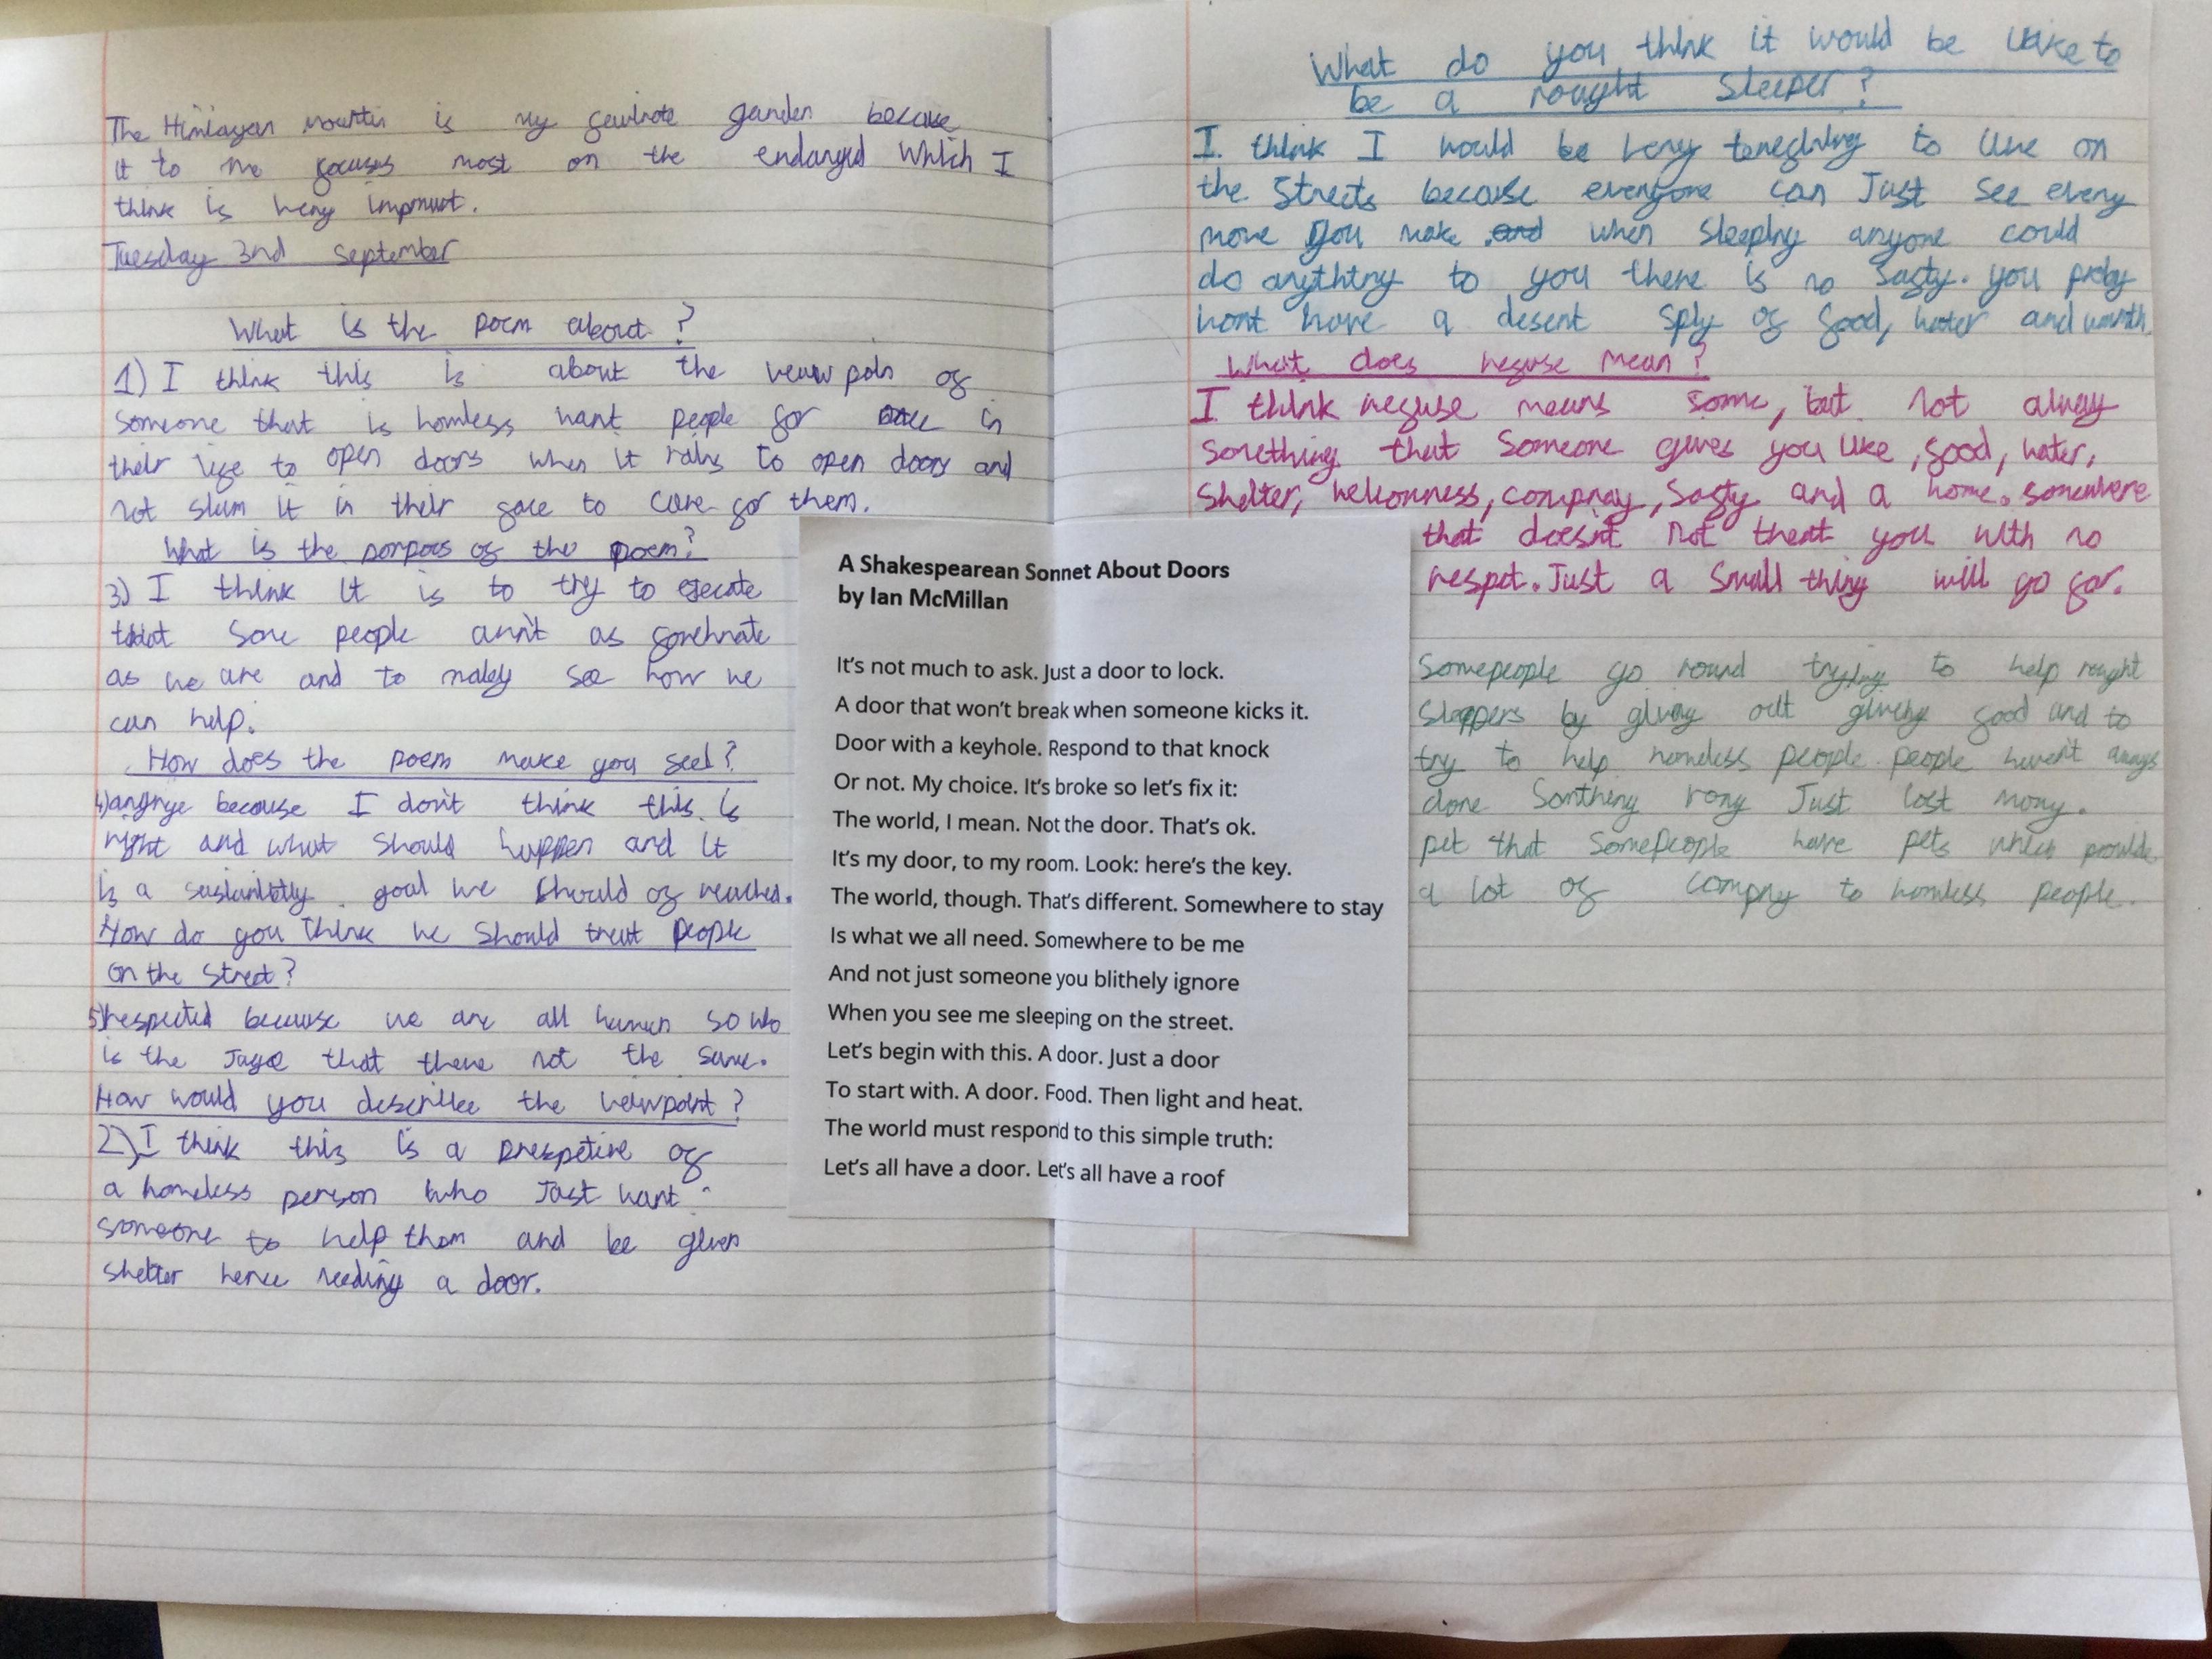 The Himlayan mountin is my favirote garden because
it to me focuses most on the endangerd which I
think is very imprtant.
Tuesday 3nd september
What is the poem about?
1) I think this is about the veiw poin of
someone that is homless want people for once in
their life to open doors when it rains to open doors and
not slam it in their face to care for them.
What is the porpous of the poem?
3) I think it is to try to
that some people arn't as
as we are and to see how we
can help.
How does the poem make you feel?
4) angrye because I don't think this is
right and what should happen and it
is a goal we should of reached.
How do you think we should treat people
on the street?
5) respected because we are all human so who
is the that there not the same.
How would you describe the veiwpoint?
2) I think this is a prespetive of
a homeless person who Just want
someone to help them and be given
shelter hence needing a door.
A Shakespearean Sonnet About Doors
by Ian McMillan
It's not much to ask. Just a door to lock.
A door that won't break when someone kicks it.
Door with a keyhole. Respond to that knock
Or not. My choice. It's broke so let's fix it:
The world, I mean. Not the door. That's ok.
It's my door, to my room. Look: here's the key.
The world, though. That's different. Somewhere to stay
Is what we all need. Somewhere to be me
And not just someone you blithely ignore
When you see me sleeping on the street.
Let's begin with this. A door. Just a door
To start with. A door. Food. Then light and heat.
The world must respond to this simple truth:
Let's all have a door. Let's all have a roof
What do you think it would be like to
be a rought sleeper?
I think I would be very to live on
the streets because everyone can Just see every
move you make and when sleeping anyone could
do anything to you there is no safty. you probly
wont have a desent sply of food, water and warmth.
What does refuse mean?
I think refuse means some, but not alway
something that someone gives you like, food, water,
shelter, welkomness, compnay, safty and a home. somewhere
that doesn't not treat you with no
respet. Just a small thing will go far.
Somepeople go round trying to help rought
sleppers by giving out food and to
try to help homeless people. people haven't aways
done somthing rong Just lost mony.
pet that somepeople have pets which provide
a lot of compny to homless people.